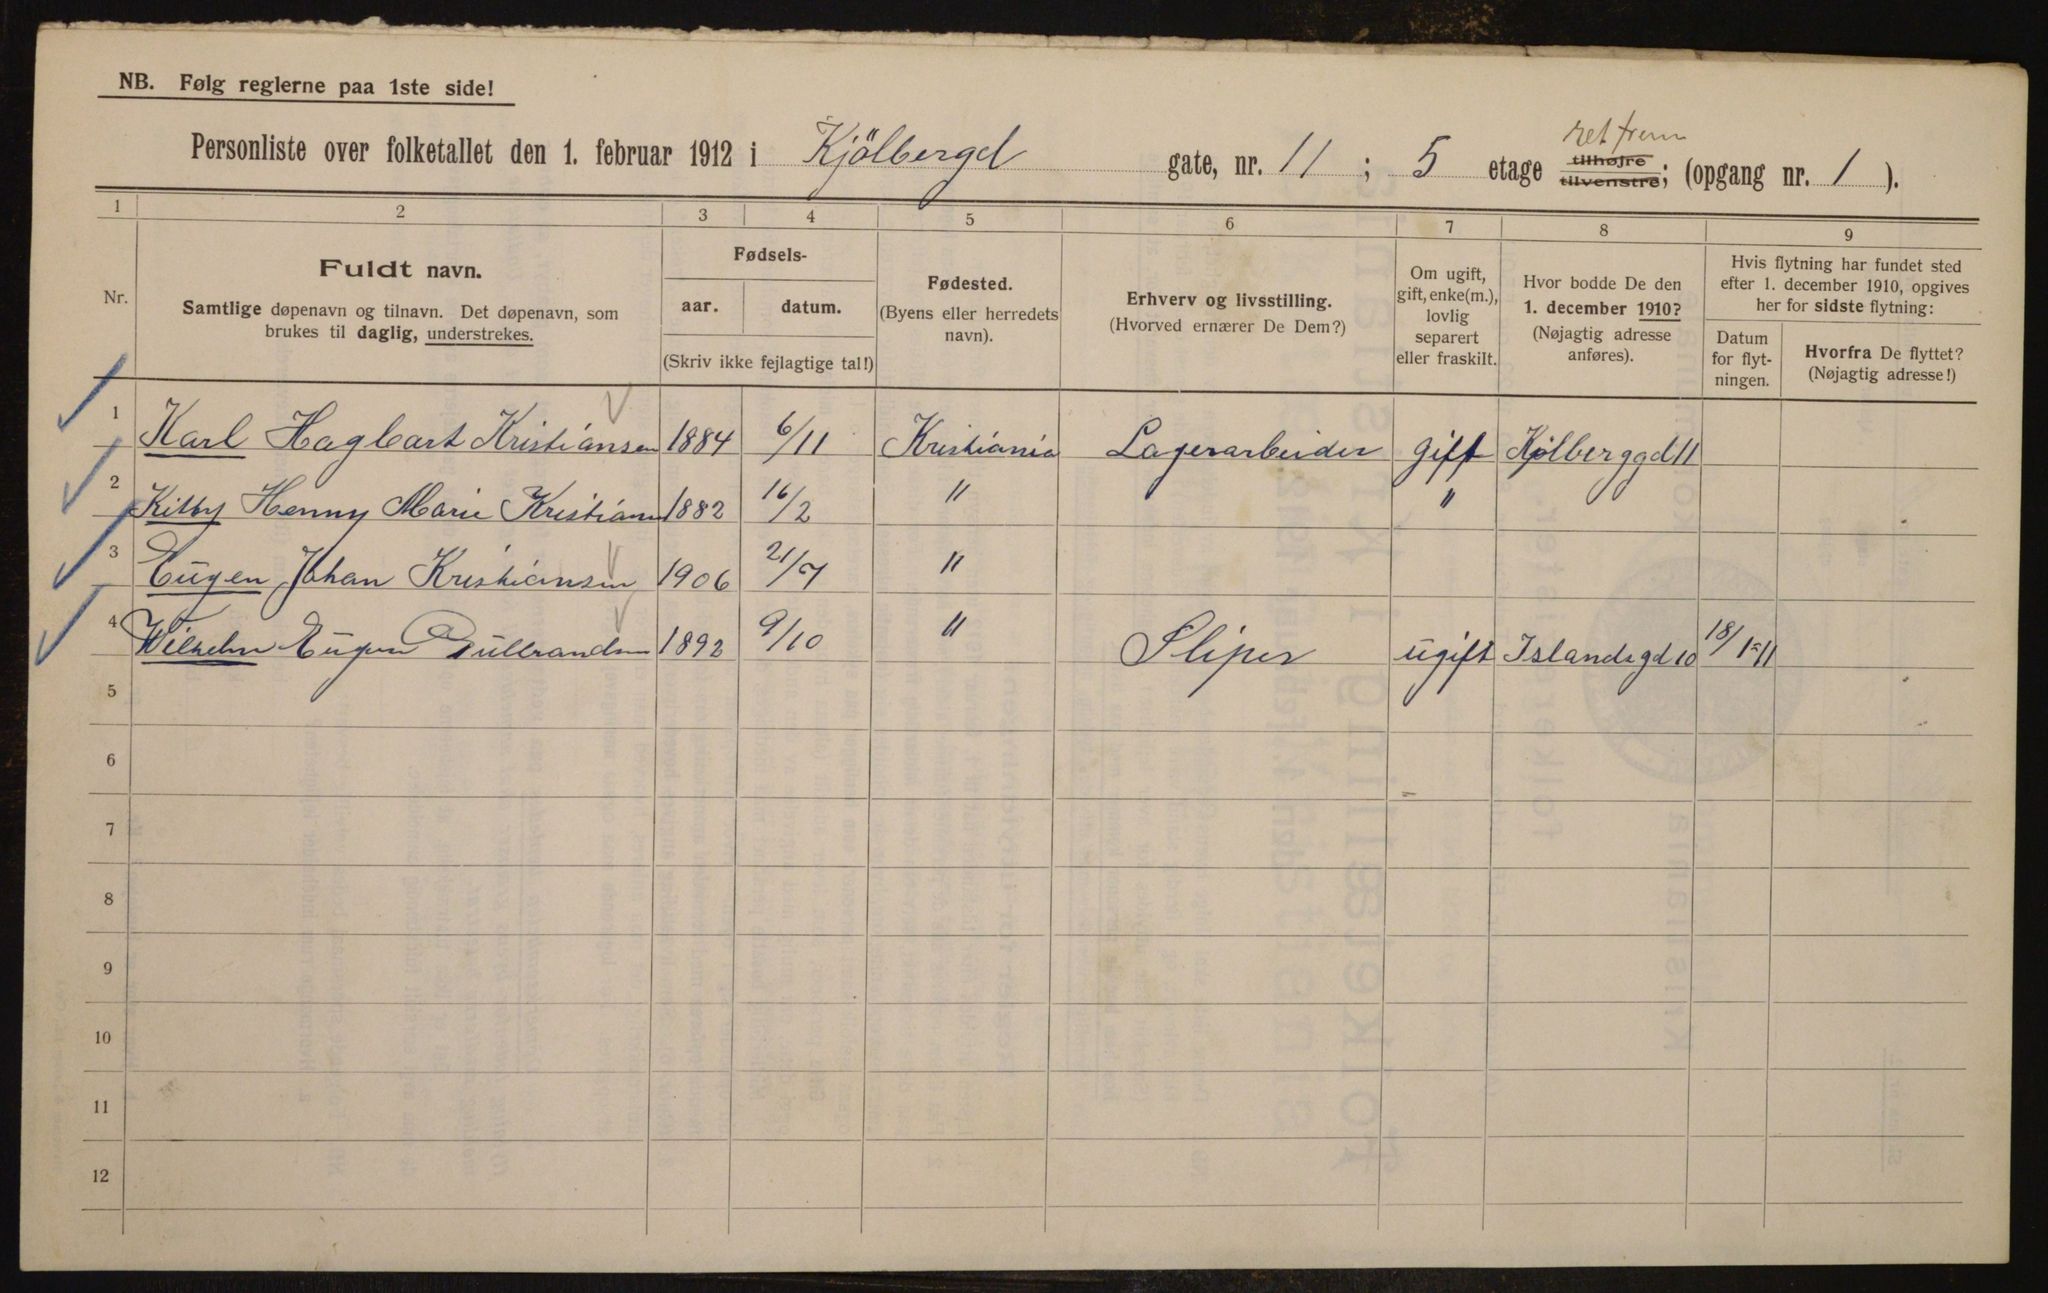 NB. Følg reglerne paa 1ste side!
ret frem
Personliste over folketallet den 1. februar 1912 i Kjölbergd gate, nr. 11 ; 5 etage tilhøjre tilvenstre; (opgang nr. 1 ).
1 2 3 4 5 6 7 8 9
Nr.
Fuldt navn.
Samtlige døpenavn og tilnavn. Det døpenavn, som
brukes til daglig, understrekes.
Fødsels-
aar. datum.
(Skriv ikke fejlagtige tal!)
Fødested.
(Byens eller herredets
navn).
Erhverv og livsstilling.
(Hvorved ernærer De Dem?)
Om ugift,
gift, enke(m.),
lovlig
separert
eller fraskilt.
Hvor bodde De den
1. december 1910?
(Nøjagtig adresse
anføres).
Hvis flytning har fundet sted
efter 1. december 1910, opgives
her for sidste flytning:
Datum
for flyt-
ningen.
Hvorfra De flyttet?
(Nøjagtig adresse!)
1 Karl Hagbart Kristiansen 1884 6/11 Kristiania Lagerarbeider gift Kjølberggd 11
2 Kitty Henny Marie Kristians 1882 16/2 " "
3 Eugen Johan Kristiansen 1906 21/7 "
4 Wilhelm Eugen Gulbrandsen 1892 9/10 " Sliper ugift Islandsgd 10 18/1-11
5
6
7
8
9
10
11
12